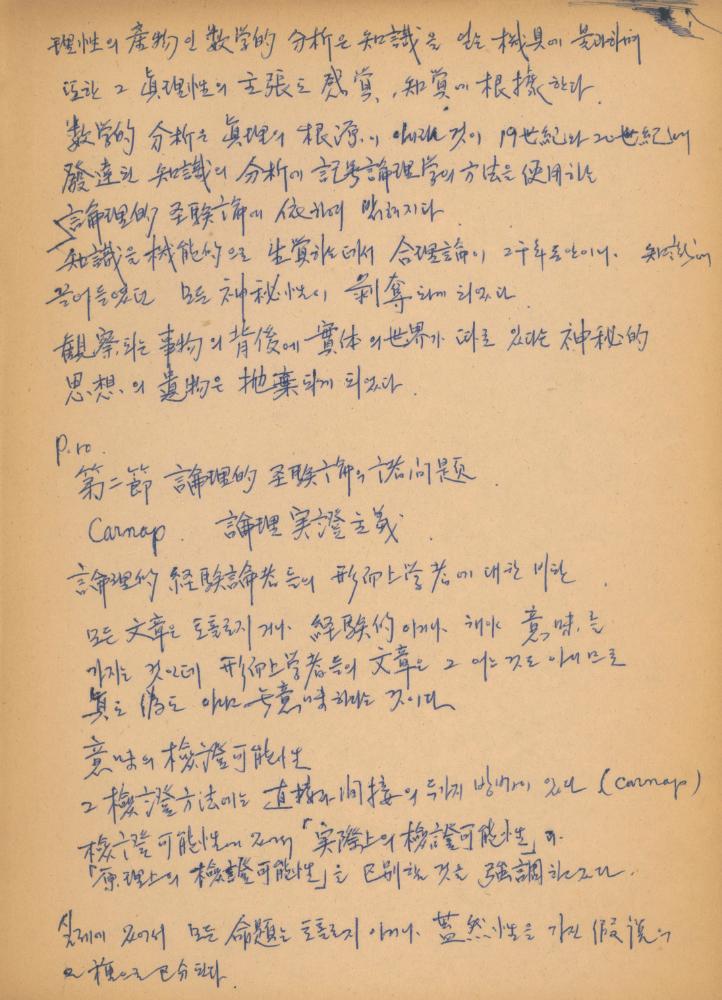 理性의 産物인 数学的 分析은 知識을 얻는 機具에 불과하며
또한 그 眞理性의 主張도 感覚, 知覚에 根據한다.
数学的 分析은 眞理의 根源이 아니라는 것이 19世紀와 20世紀에
發達된 知識의 分析에 記号論理学의 方法을 使用하는
論理的 経験論에 依하여 밝혀지다
知識을 機能的으로 生覚하는데서 合理論이 2千年동안이나 知識에
끌어들였던 모든 神秘性이 剝奪되게 되었다.
観察되는 事物의 背後에 實体의 世界가 따로 있다는 神秘的
思想의 遺物은 抛棄되게 되었다.
P.10.
第二節 論理的 経験論의 諸问题.
Carnap. 論理実證主義.
論理的 経験論者들의 形而上学者에 대한 비판.
모든 文章은 토톨로지거나 経験的이거나 해야 意味를
가지는 것인데 形而上学者들의 文章은 그 어느것도 아니므로
眞도 偽도 아닌 無意味하다는 것이다
意味의 檢證可能性
그 檢證方法에는 直接과 间接의 두가지 방법이 있다 (carnap)
検證可能性에 있어서 「実際上의 検證可能性」과
「原理上의 検證可能性」을 区别할 것을 強調하고 있다.
실제에 있어서 모든 命題는 토톨로지 아니면 蓋然性을 가진 假說의
二種으로 区分된다.